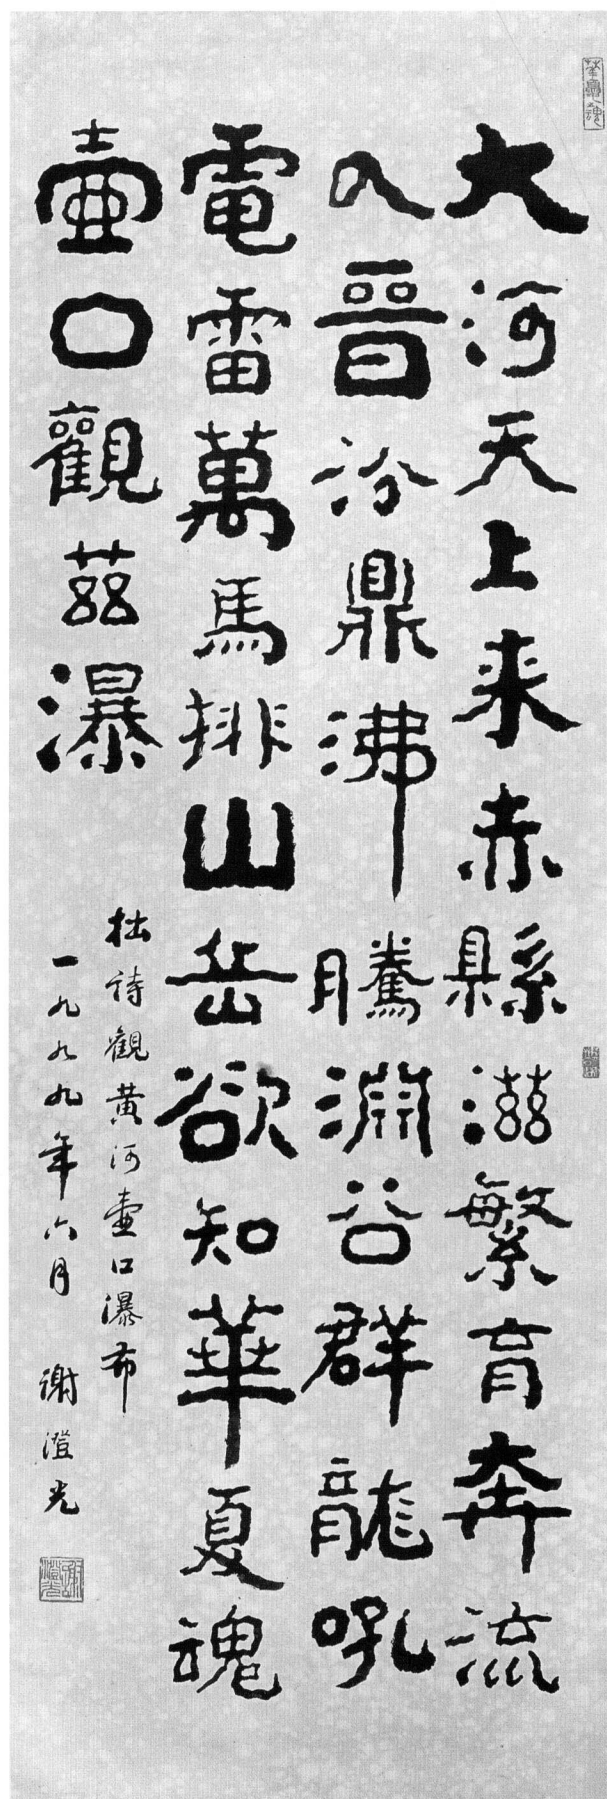 大河天上来赤縣滋繁育奔流
入晉汾鼎沸騰淵谷群龍吼
電雷萬馬排山岳欲知華夏魂
壺口觀茲瀑
拙詩觀黄河壺口瀑布
一九九九年六月 謝澄光